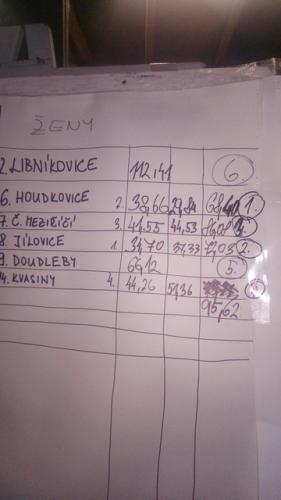 ŽENY
2. LIBNÍKOVICE 112,41 6.
6. HOUDKOVICE 2. 38,66 29,84 1.
7. Č. MEZIŘÍČÍ 3. 41,55 44,53
8. JÍLOVICE 1. 37,33 2.
9. DOUDLEBY 66,12 5.
4. KVASINY 4. 44,26 51,36
95,62